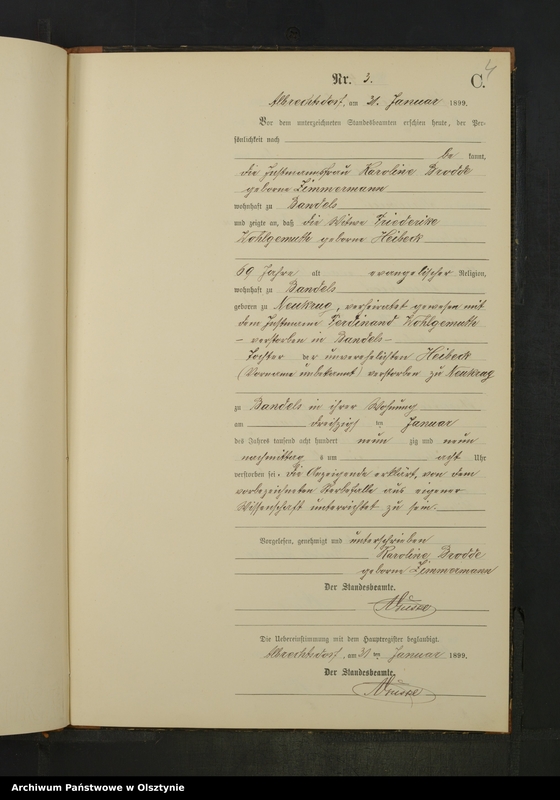 4
Nr. 3.
C.
Albrechtsdorf, am 31. Januar 1899.
Vor dem unterzeichneten Standesbeamten erschien heute, der Per-
sönlichkeit nach
be kannt,
die Instmannsfrau Karoline Brodde
geborne Zimmermann
wohnhaft zu Bandels
und zeigte an, daß die Witwe Friederike
Wohlgemuth geborne Heibeck
69 Jahre alt evangelischer Religion,
wohnhaft zu Bandels
geboren zu Neukrug, verheiratet gewesen mit
dem Instmann Ferdinand Wohlgemuth
- verstorben in Bandels -
Tochter der unverehelichten Heibeck
(Vorname unbekannt) verstorben zu Neukrug
zu Bandels in ihrer Wohnung
am dreißigsten Januar
des Jahres tausend acht hundert neun zig und neun
nachmittag s um acht Uhr
verstorben sei. Die Anzeigende erklärt, von dem
vorbezeichneten Sterbefalle aus eigener
Wissenschaft unterrichtet zu sein.
Vorgelesen, genehmigt und unterschrieben
Karoline Brodde
geborne Zimmermann
Der Standesbeamte.
Die Uebereinstimmung mit dem Hauptregister beglaubigt.
Albrechtsdorf, am 31 ten Januar 1899.
Der Standesbeamte.
Archiwum Państwowe w Olsztynie